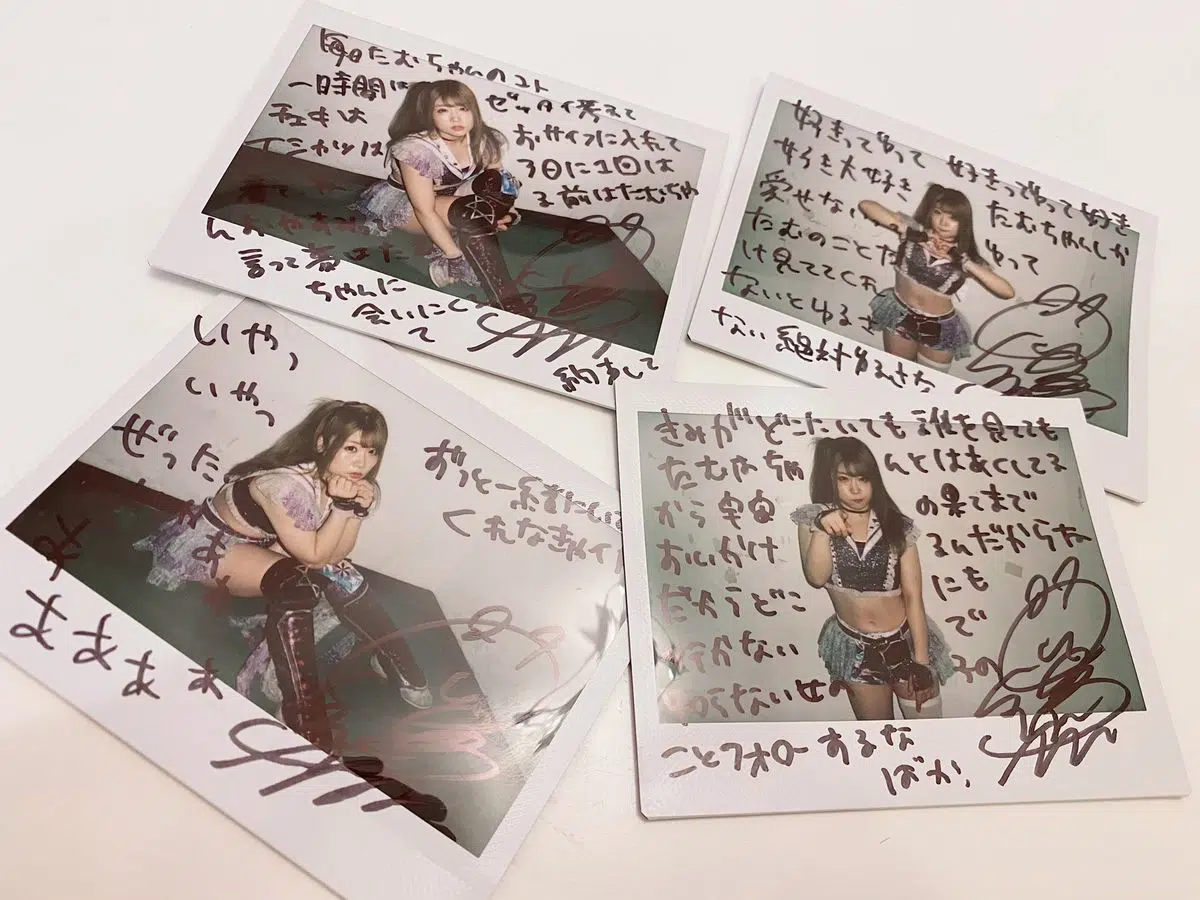 毎日たむちゃんのコト
一時間は ゼッタイ考えて
チェキは おサイフに入れて
Tシャツは 3日に1回は
着て ネる前はたむちゃ
んおやすみ
言って春はた
ちゃんに
会いにき
て
約束して
好きってゆって 好きってゆって好き
好き大好き たむちゃんしか
愛せない ゆって
たむのことだ
け見ててくれ
ないとゆるさ
ない絶対ゆるさな
いやっ
いやっ
ぜったい
ずっと一緒にいて
くれなきゃイ
きみがどこにいても誰を見てても
たむちゃんとはあくしてる
から宇宙 の果てまで
おいかけ るんだからな
だからどこ にも
行かない で
知らない女の子の
ことフォローするな
ばか。